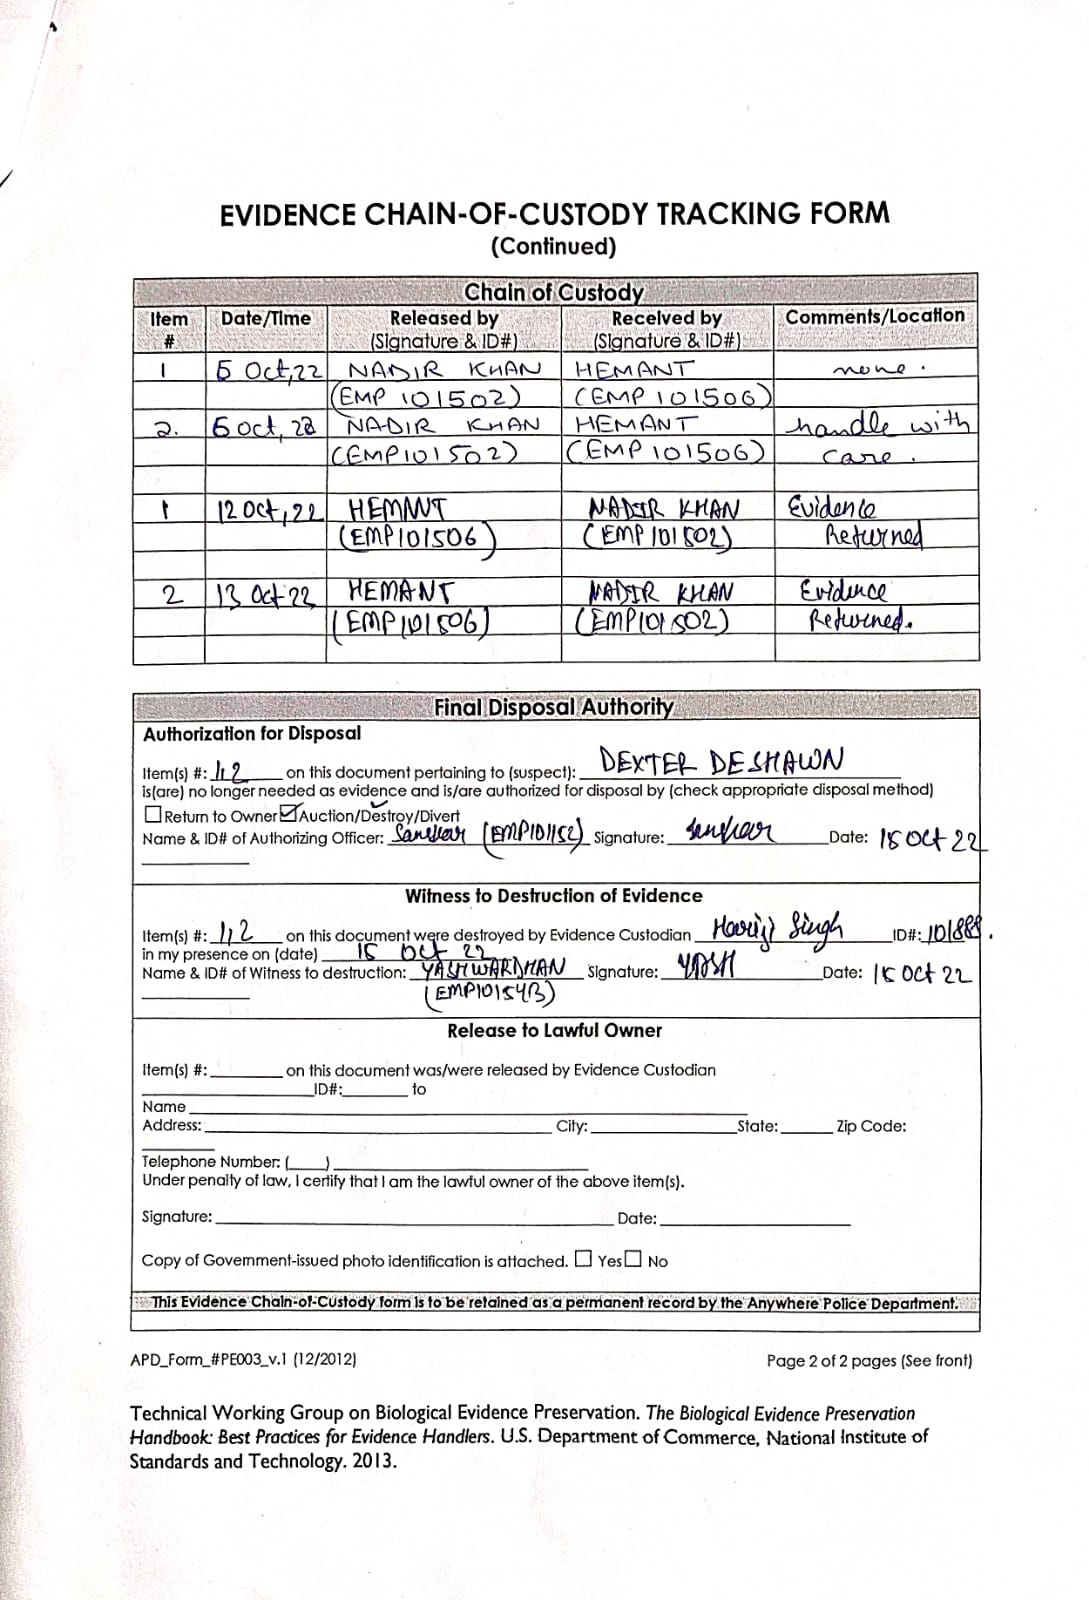 EVIDENCE CHAIN-OF-CUSTODY TRACKING FORM
(Continued)
Chain of Custody
Item # Date/Time Released by (Signature & ID#) Received by (Signature & ID#) Comments/Location
1 5 Oct,22 NADIR KHAN HEMANT none.
(EMP 101502) (EMP 101506)
2. 6 Oct, 22 NADIR KHAN HEMANT handle with
(EMP101502) (EMP 101506) care.
1 12 Oct,22 HEMANT NADIR KHAN Evidence
(EMP101506) (EMP 101502) Returned
2 13 Oct 22 HEMANT NADIR KHAN Evidence
(EMP101506) (EMP101502) Returned.
Final Disposal Authority
Authorization for Disposal
Item(s) #: 1,2 on this document pertaining to (suspect): DEXTER DESHAWN
is(are) no longer needed as evidence and is/are authorized for disposal by (check appropriate disposal method)
Return to Owner Auction/Destroy/Divert
Name & ID# of Authorizing Officer: (EMP101152) Signature: Date: 15 Oct 22
Witness to Destruction of Evidence
Item(s) #: 1,2 on this document were destroyed by Evidence Custodian Singh ID#: 101888.
in my presence on (date) 15 Oct 22
Name & ID# of Witness to destruction: YASHWARDHAN Signature: YASH Date: 15 Oct 22
Release to Lawful Owner
Item(s) #: on this document was/were released by Evidence Custodian
ID#: to
Name
Address: City: State: Zip Code:
Telephone Number: ( )
Under penalty of law, I certify that I am the lawful owner of the above item(s).
Signature: Date:
Copy of Government-issued photo identification is attached. Yes No
This Evidence Chain-of-Custody form is to be retained as a permanent record by the Anywhere Police Department.
APD_Form_#PE003_v.1 (12/2012) Page 2 of 2 pages (See front)
Technical Working Group on Biological Evidence Preservation. The Biological Evidence Preservation
Handbook: Best Practices for Evidence Handlers. U.S. Department of Commerce, National Institute of
Standards and Technology. 2013.